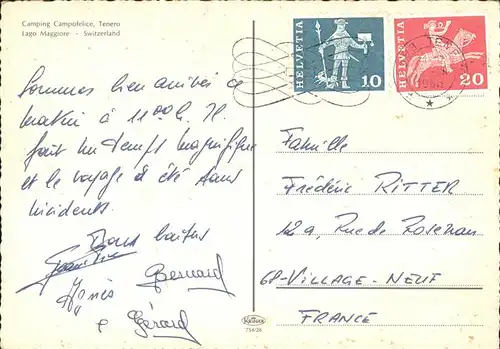 Camping Campofelice, Tenero
Lago Maggiore - Switzerland
Sommes bien arrivés ce
matin à 1100 h. Il
fait un temps magnifique
et le voyage a été sans
incidents.
Bons baisers
Bernard
Agnès
e Gérard
HELVETIA
10
HELVETIA
20
Famille
Frédéric RITTER
12a, Rue de Rosenau
68-VILLAGE-NEUF
FRANCE
754/26